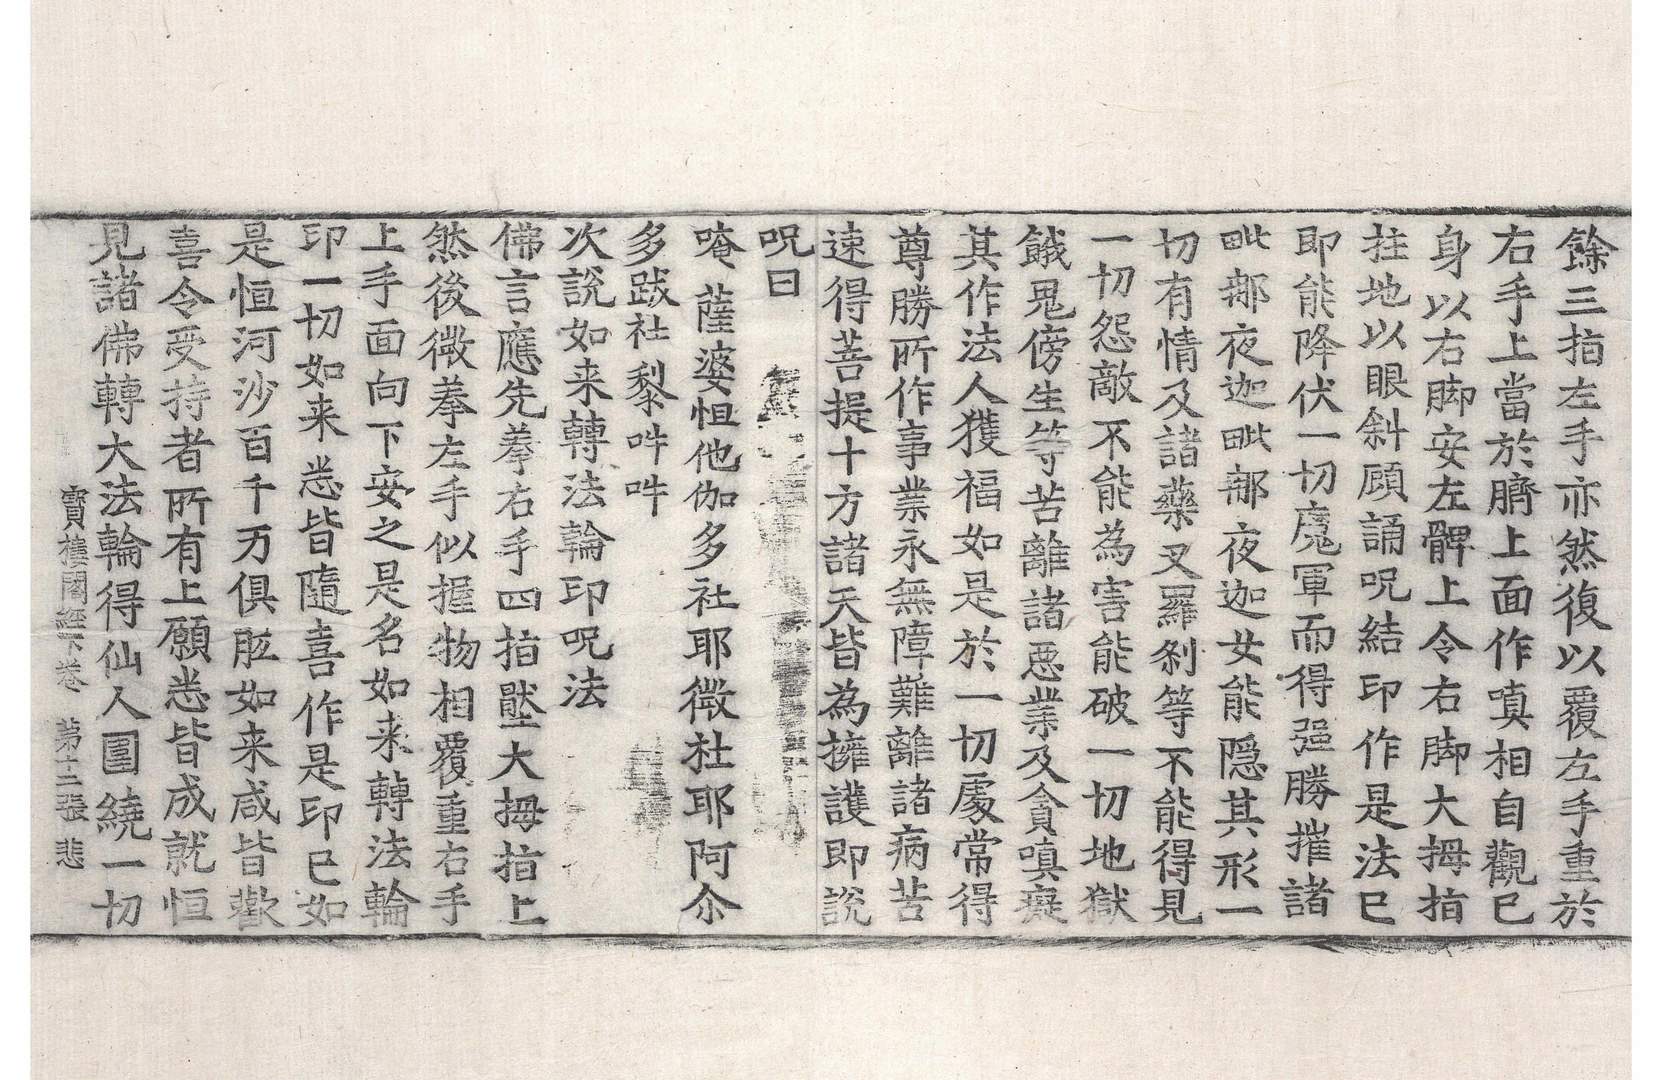 餘三指左手亦然復以覆左手重於
右手上當於臍上面作嗔相自觀已
身以右脚安左髀上令右脚大拇指
拄地以眼斜顧誦呪結印作是法已
即能降伏一切魔軍而得强勝摧諸
毗那夜迦毗那夜迦女能隱其形一
切有情及諸藥叉羅刹等不能得見
一切怨敵不能為害能破一切地獄
餓鬼傍生等苦離諸惡業及貪嗔癡
其作法人獲福如是於一切處常得
尊勝所作事業永無障難離諸病苦
速得菩提十方諸天皆為擁護即說
呪曰
唵薩婆怛他伽多社耶微杜耶阿尒
多跋社黎吽吽
次說如来轉法輪印呪法
佛言應先拳右手四指壓大拇指上
然後微拳左手似握物相覆重右手
上手面向下安之是名如来轉法輪
印一切如来悉皆隨喜作是印已如
是恒河沙百千万俱胝如来咸皆歡
喜令受持者所有上願悉皆成就恒
見諸佛轉大法輪得仙人圍繞一切
寶樓閣經下卷 第十二張 悲